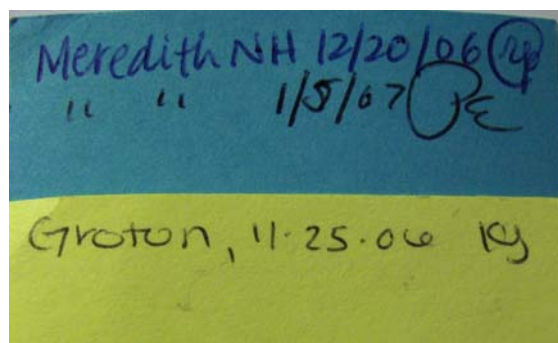 Meredith NH 12/20/06
" " 1/5/07
Groton, 11.25.06 Kg